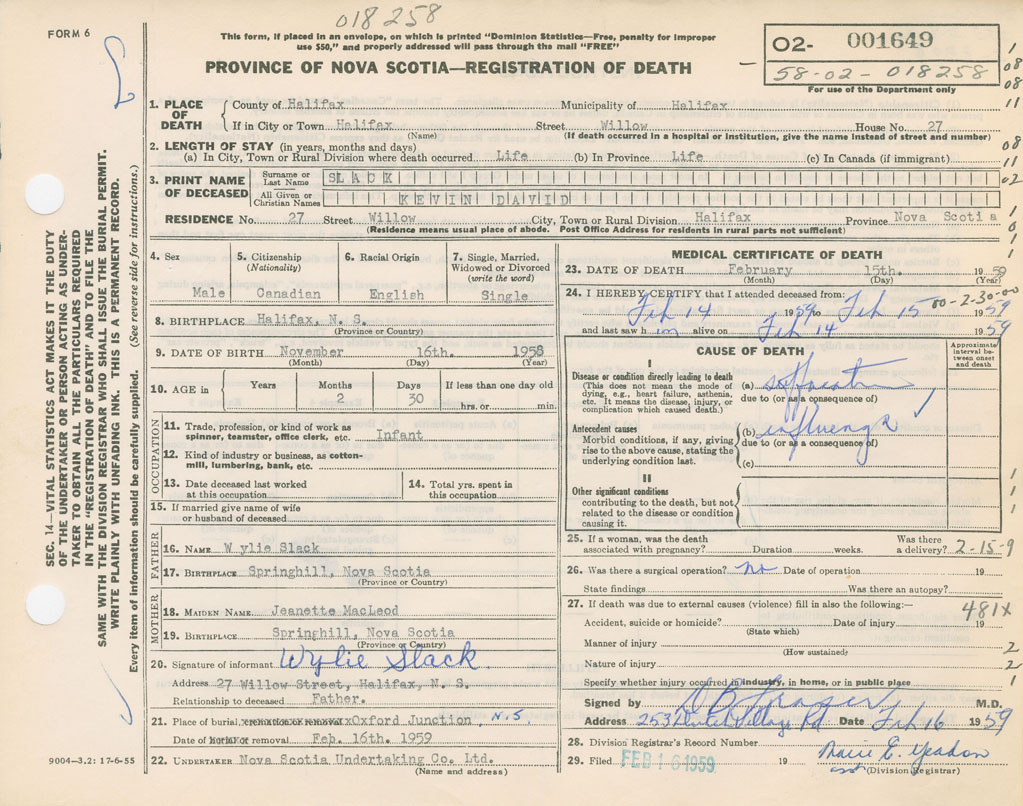 018258
FORM 6
This form, if placed in an envelope, on which is printed "Dominion Statistics—Free, penalty for improper
use $50," and properly addressed will pass through the mail "FREE"
PROVINCE OF NOVA SCOTIA—REGISTRATION OF DEATH
02- 001649
58-02-018258
For use of the Department only
SEC. 14—VITAL STATISTICS ACT MAKES IT THE DUTY
OF THE UNDERTAKER OR PERSON ACTING AS UNDER-
TAKER TO OBTAIN ALL THE PARTICULARS REQUIRED
IN THE "REGISTRATION OF DEATH" AND TO FILE THE
SAME WITH THE DIVISION REGISTRAR WHO SHALL ISSUE THE BURIAL PERMIT.
WRITE PLAINLY WITH UNFADING INK. THIS IS A PERMANENT RECORD.
Every item of information should be carefully supplied. (See reverse side for instructions.)
1. PLACE OF DEATH County of Halifax Municipality of Halifax
If in City or Town Halifax Street Willow House No. 27
(Name) (If death occurred in a hospital or institution, give the name instead of street and number)
2. LENGTH OF STAY (in years, months and days)
(a) In City, Town or Rural Division where death occurred Life (b) In Province Life (c) In Canada (if immigrant)
3. PRINT NAME OF DECEASED Surname or Last Name SLACK
All Given or Christian Names KEVIN DAVID
RESIDENCE No. 27 Street Willow City, Town or Rural Division Halifax Province Nova Scotia
(Residence means usual place of abode. Post Office Address for residents in rural parts not sufficient)
4. Sex 5. Citizenship (Nationality) 6. Racial Origin 7. Single, Married, Widowed or Divorced (write the word)
Male Canadian English Single
8. BIRTHPLACE Halifax, N. S.
(Province or Country)
9. DATE OF BIRTH November 16th. 1958
(Month) (Day) (Year)
10. AGE in Years Months Days If less than one day old
2 30 hrs. or min.
OCCUPATION
11. Trade, profession, or kind of work as
spinner, teamster, office clerk, etc. Infant
12. Kind of industry or business, as cotton-
mill, lumbering, bank, etc.
13. Date deceased last worked at this occupation 14. Total yrs. spent in this occupation
15. If married give name of wife
or husband of deceased
FATHER
16. NAME Wylie Slack
17. BIRTHPLACE Springhill, Nova Scotia
(Province or Country)
MOTHER
18. MAIDEN NAME Jeanette MacLeod
19. BIRTHPLACE Springhill, Nova Scotia
(Province or Country)
20. Signature of informant Wylie Slack.
Address 27 Willow Street, Halifax, N. S.
Relationship to deceased Father.
21. Place of burial, cremation or removal Oxford Junction, N.S.
Date of burial or removal Feb. 16th. 1959
22. UNDERTAKER Nova Scotia Undertaking Co. Ltd.
(Name and address)
9004—3.2: 17-6-55
MEDICAL CERTIFICATE OF DEATH
23. DATE OF DEATH February 15th. 1959
(Month) (Day) (Year)
24. I HEREBY CERTIFY that I attended deceased from: 00-2-30-00
Feb 14 1959 to Feb 15 1959
and last saw him alive on Feb 14 1959
CAUSE OF DEATH
Approximate interval between onset and death
I
Disease or condition directly leading to death (a) suffocation
(This does not mean the mode of dying, e.g., heart failure, asthenia, etc. It means the disease, injury, or complication which caused death.) due to (or as a consequence of)
Antecedent causes (b) influenza
Morbid conditions, if any, giving rise to the above cause, stating the underlying condition last. due to (or as a consequence of)
(c)
II
Other significant conditions
contributing to the death, but not
related to the disease or condition
causing it.
25. If a woman, was the death associated with pregnancy? Duration weeks. Was there a delivery? 2-15-9
26. Was there a surgical operation? no Date of operation 19
State findings Was there an autopsy?
27. If death was due to external causes (violence) fill in also the following:— 481X
Accident, suicide or homicide? Date of injury 19
(State which)
Manner of injury
(How sustained)
Nature of injury
Specify whether injury occurred in industry, in home, or in public place
Signed by D B Fraser M.D.
Address 253 Dutch Village Rd Date Feb 16 1959
28. Division Registrar's Record Number
29. Filed FEB 16 1959 19 Marie E. Yeadon
(Division Registrar)